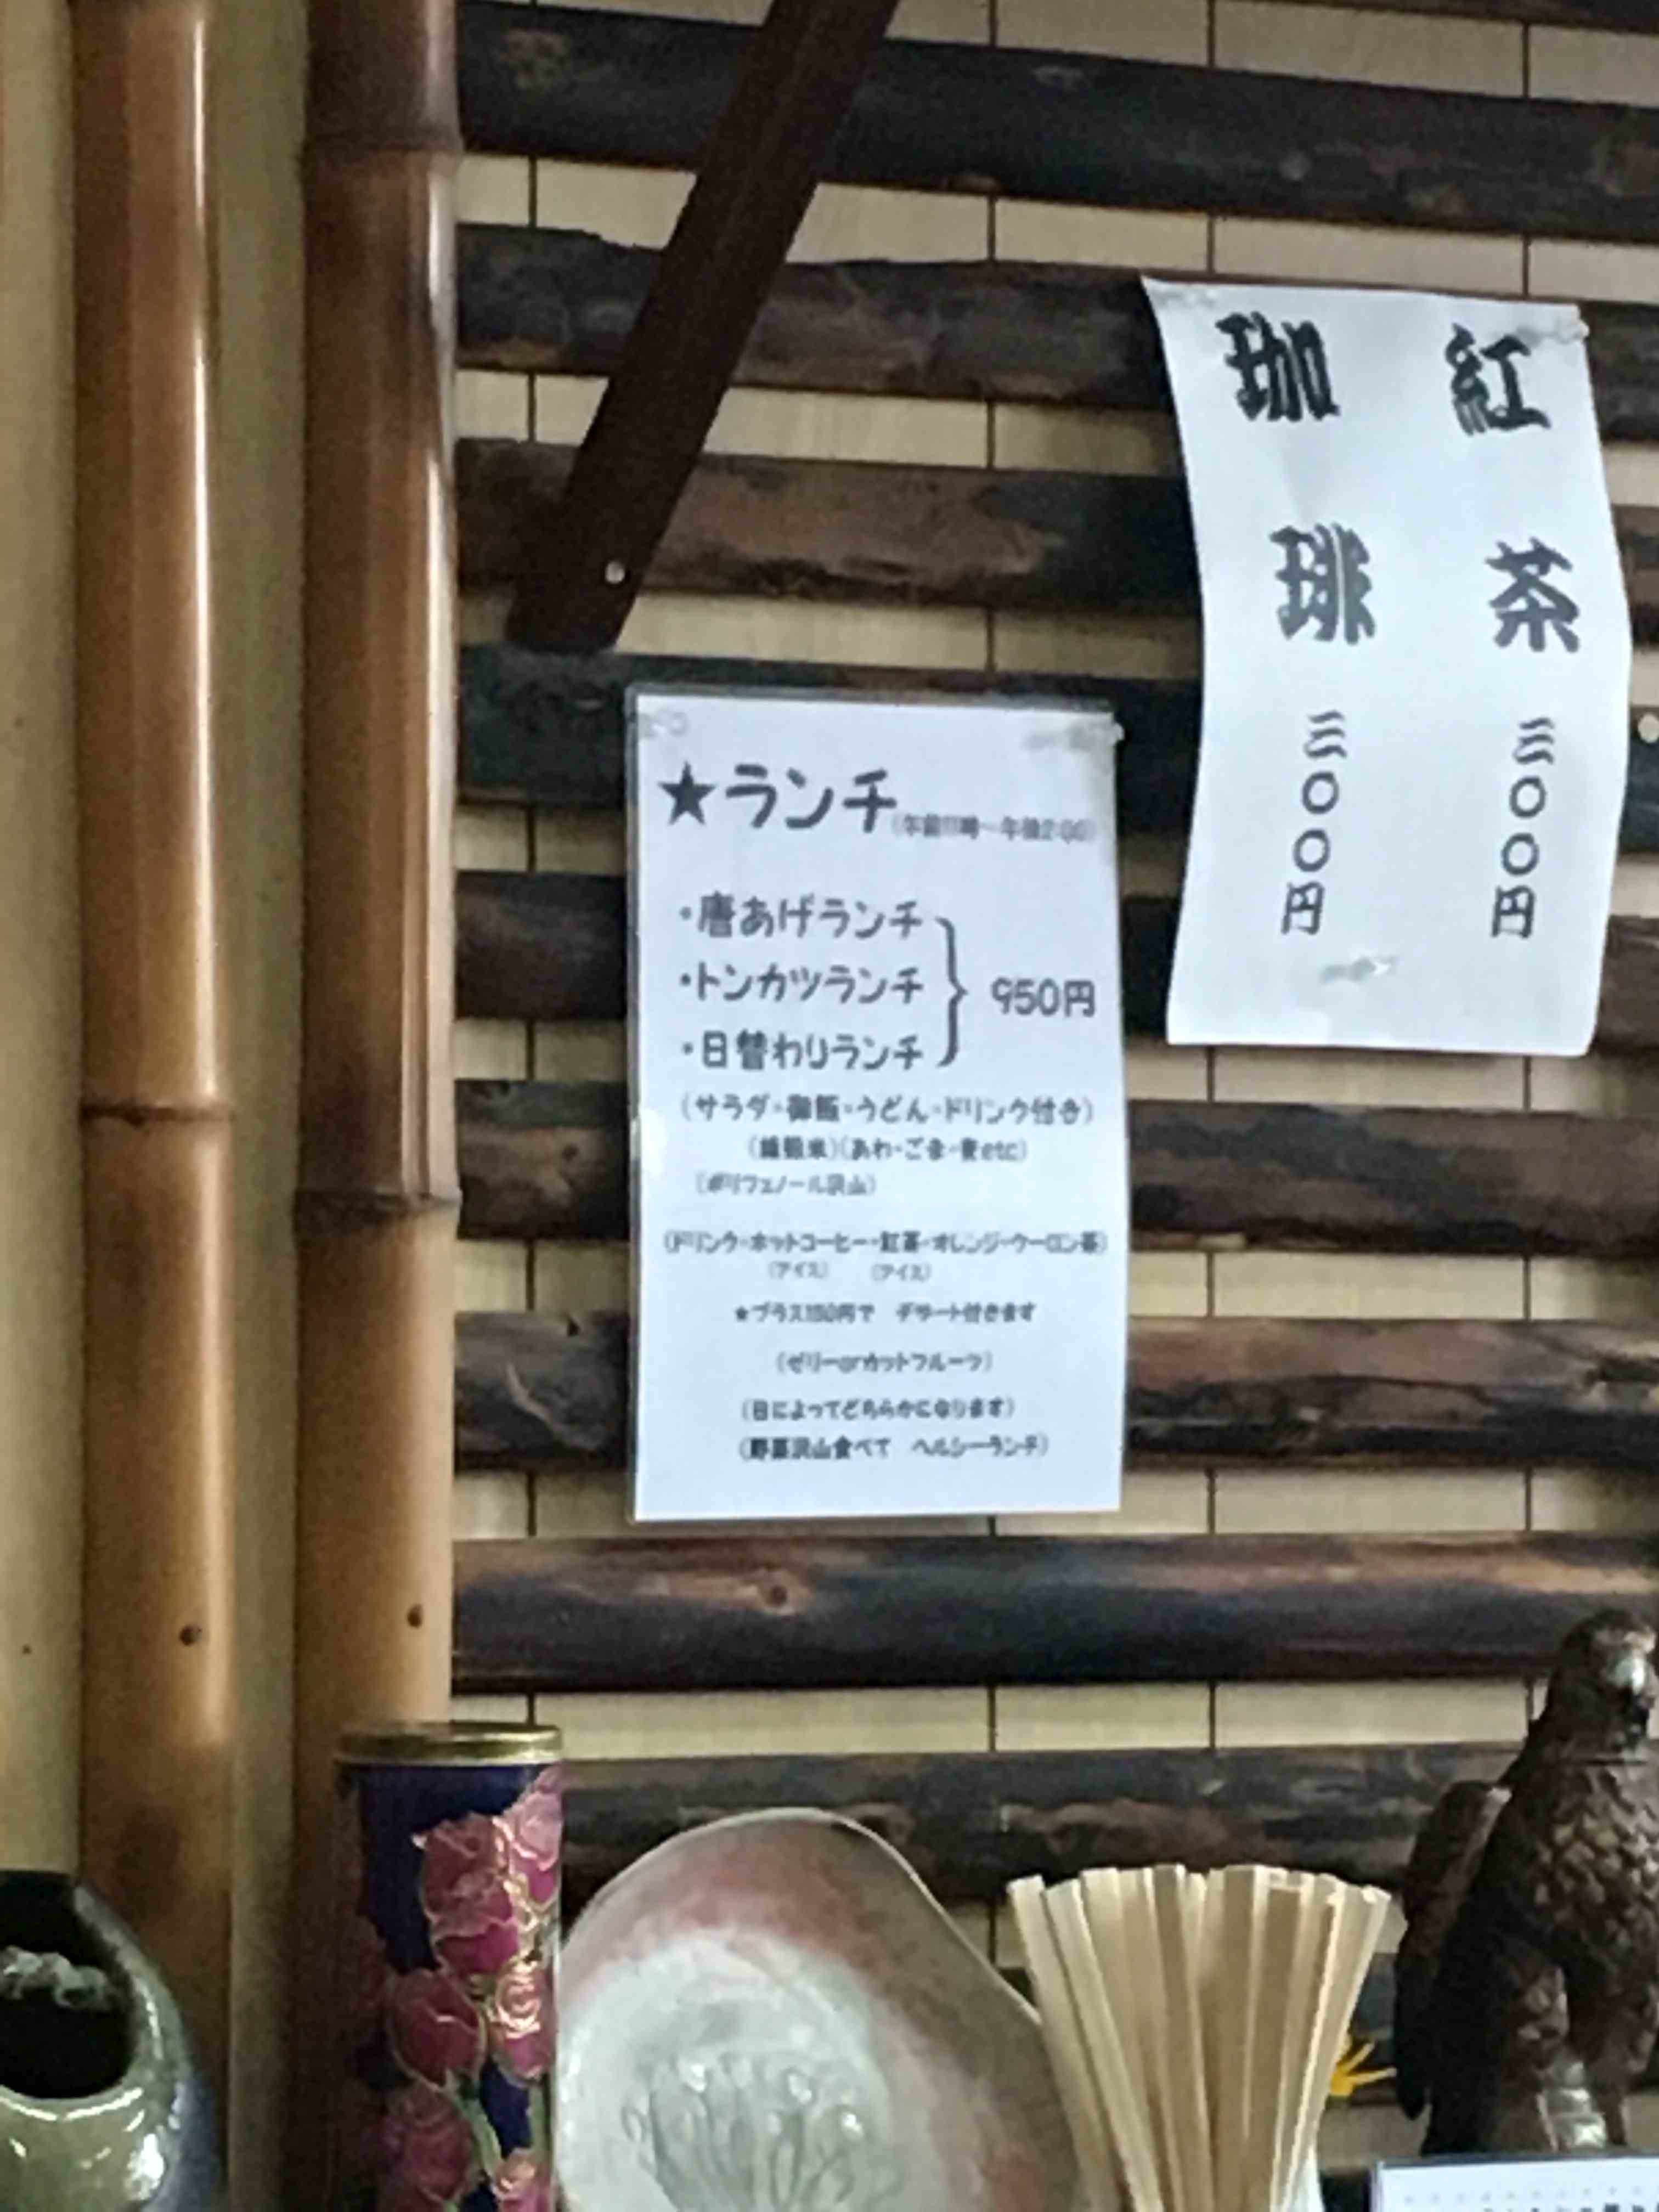 紅茶 三〇〇円
珈琲 三〇〇円
★ランチ(午前11時~午後2:00)
・唐あげランチ
・トンカツランチ
・日替わりランチ
950円
(サラダ・御飯・うどん・ドリンク付き)
(雑穀米)(あわ・ごま・麦etc)
(ポリフェノール沢山)
(ドリンク・ホットコーヒー・紅茶・オレンジ・ウーロン茶)
(アイス) (アイス)
★プラス150円で デザート付きます
(ゼリーorカットフルーツ)
(日によってどちらかになります)
(野菜沢山食べて ヘルシーランチ)